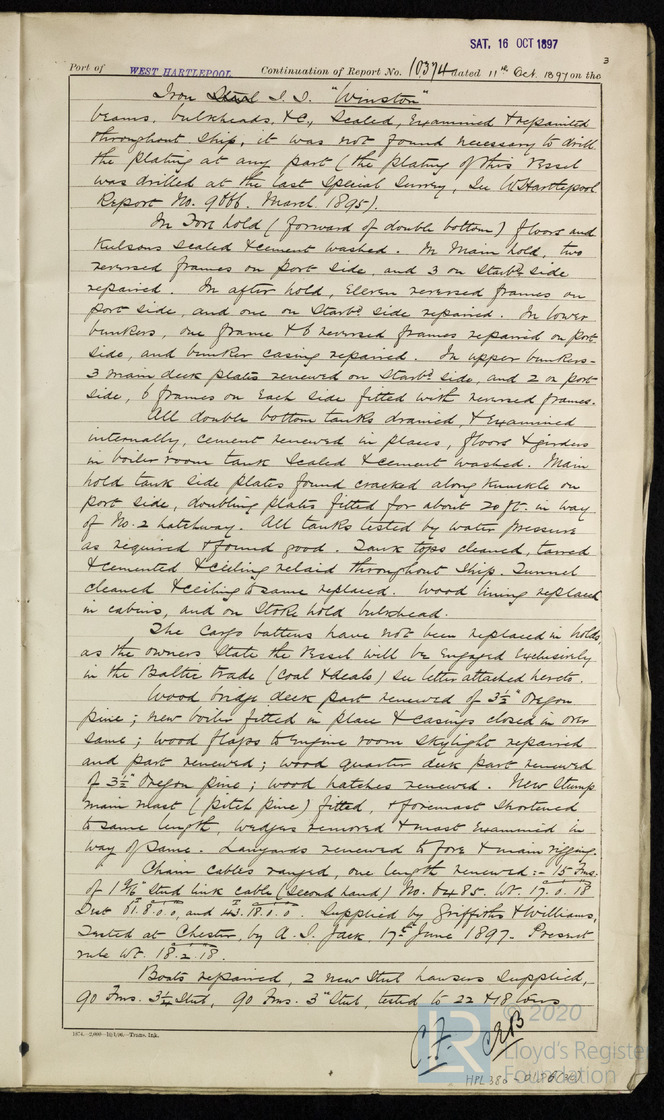 SAT. 16 OCT 1897
3
Port of WEST HARTLEPOOL Continuation of Report No. 10374 dated 11th Oct. 1897 on the
Iron S.S. "Winston"
beams, bulkheads, &c, scaled, examined & repainted
throughout ship, it was not found necessary to drill
the plating at any part (the plating of this vessel
was drilled at the last Special Survey, See W. Hartlepool
Report No. March 1895).
In Fore hold (forward of double bottom) floors and
keelsons scaled & cement washed. In Main hold, two
reversed frames on port side, and 3 on Starbd side
repaired. In after hold, eleven reversed frames on
port side, and one on Starbd side repaired. In lower
bunkers, one frame & 6 reversed frames repaired on port
side, and bunker casing repaired. In upper bunkers -
3 main deck plates renewed on Starbd side, and 2 on port
side, 6 frames on each side fitted with reversed frames.
All double bottom tanks drained, & examined
internally, cement renewed in places, floors & girders
in boiler room tank scaled & cement washed. Main
hold tank side plates found cracked along knuckle on
port side, doubling plates fitted for about 20 ft. in way
of No. 2 hatchway. All tanks tested by water pressure
as required & found good. Tank tops cleaned, tarred
& cemented & ceiling relaid throughout ship. Tunnel
cleaned & ceiling to same replaced. Wood lining replaced
in cabins, and on Stoke hold bulkhead.
The cargo battens have not been replaced in holds
as the owners state the vessel will be engaged exclusively
in the Baltic trade (coal & deals) see letter attached hereto.
Wood bridge deck part renewed of 3½" Oregon
pine; new boiler fitted in place & casings closed in over
same; wood flaps to engine room skylight repaired
and part renewed; wood quarter deck part renewed
of 3½" Oregon pine; wood hatches renewed. New stump
main mast (pitch pine) fitted, & foremast shortened
to same length, wedges removed & mast examined in
way of same. Lanyards renewed to fore & main rigging.
Chain cables ranged, one length renewed:- 15 fms.
of 1 9/16" stud link cable (second hand) No. 8485. Wt. 17.0.18
Test 61.8.0.0, and 43.18.0.0. Supplied by Griffiths & Williams,
Tested at Chester, by A. J. Jack, 17th June 1897. Present
rule wt. 18.2.18.
Boats repaired, 2 new steel hawsers supplied,
90 fms. 3¼ Steel, 90 fms. 3" Steel, tested to 22 & 18 tons
© 2020
LR
Lloyd's Register
Foundation